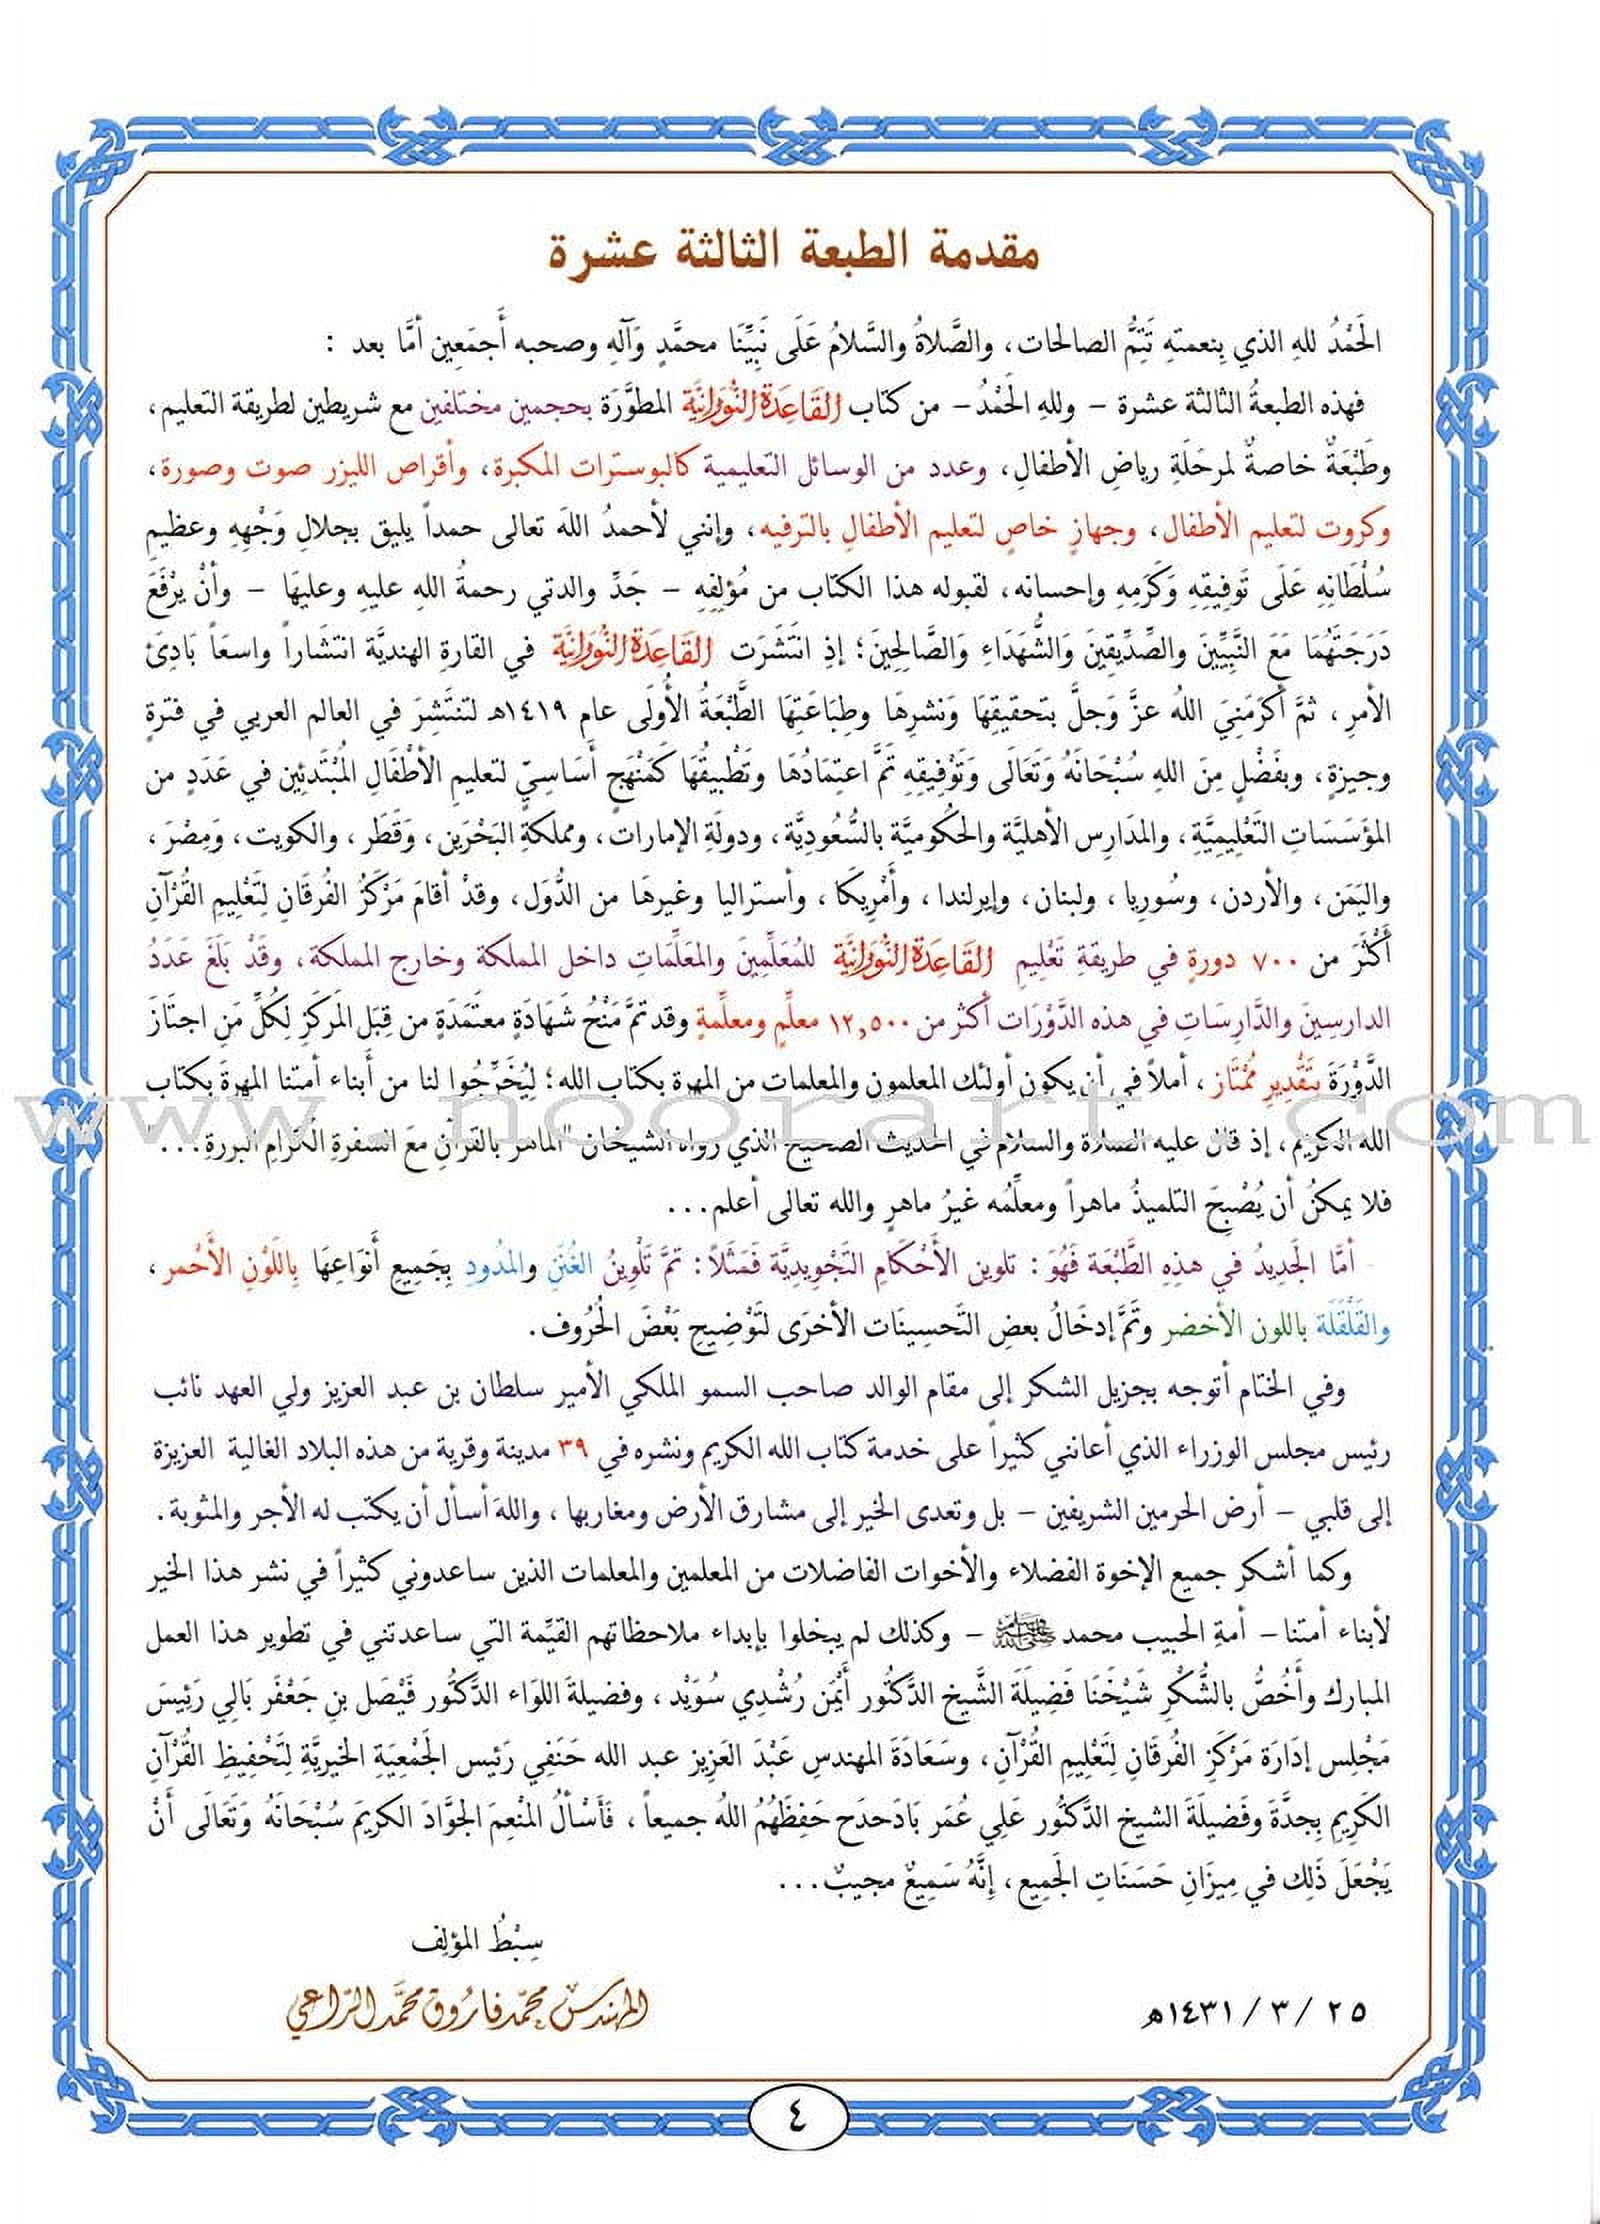 مقدمة الطبعة الثالثة عشرة
الحَمْدُ للهِ الذي بِنعمتهِ تَتِمُّ الصالحات، والصَّلاةُ والسَّلامُ عَلَى نَبِيِّنَا محمَّدٍ وَآلِهِ وصحبه أَجمَعِين أمَّا بعد :
فهذه الطبعةُ الثالثة عشرة - وللهِ الحَمْدُ - من كتاب القَاعِدَة النُّورَانِيَّة المطوَّرَة بحجمين مختلفين مع شريطين لطريقة التعليم،
وطَبْعَةٌ خاصةٌ لمرحَلَةِ رياضِ الأطفالِ، وعدد من الوسائل التعليمية كالبوسترات المكبرة، وأقراص الليزر صوت وصورة،
وكروت لتعليم الأطفال، وجهازٍ خاصٍ لتعليم الأطفالِ بالترفيه، وإنني لأحمدُ اللهَ تعالى حمداً يليق بجلالِ وَجْهِهِ وعظيمِ
سُلْطَانِهِ عَلَى تَوفِيقِهِ وَكَرَمِهِ وإحسانه، لقبوله هذا الكتاب من مُؤلِفِهِ - جَدِّ والدتي رحمةُ اللهِ عليهِ وعليهَا - وأنْ يرْفَعَ
دَرَجَتَهُمَا مَعَ النَّبِيِّينَ والصِّدِّيقِينَ وَالشُّهَدَاءِ وَالصَّالِحِينَ؛ إذِ انْتَشَرَت القَاعِدَة النُّورَانِيَّة في القارةِ الهنديَّة انتشَاراً واسعَاً بَادِئَ
الأمرِ، ثمَّ أَكرَمَنِيَ اللهُ عزَّ وَجلَّ بتحقيقِهَا وَنشرِهَا وطِبَاعَتِهَا الطَّبْعَةُ الأُولَى عام ١٤١٩هـ لتنتَشِرَ في العالم العربي في فترةٍ
وجيزةٍ، وبفَضْلٍ مِنَ اللهِ سُبْحَانَهُ وَتَعَالَى وَتَوْفِيقِهِ تمَّ اعتِمَادُهَا وتَطْبِيقُهَا كَمَنْهَجٍ أَسَاسِيٍّ لتعليمِ الأطْفَالِ المُبْتَدِئِين في عَدَدٍ من
المؤَسَسَاتِ التَّعْلِيمِيَّةِ، والمدَارِس الأهليَّة والحكُوميَّة بالسُّعُودِيَّة، ودولَةِ الإمارات، ومملكةِ البَحْرَين، وَقَطَر، والكويت، وَمِصْرَ،
واليَمَن، والأردن، وسُورِيا، ولبنان، وإيرلندا، وأَمْرِيكَا، وأستراليا وغيرهَا من الدُّوَل، وقدْ أقَامَ مَرْكَزُ الفُرقَانِ لِتَعْلِيمِ القُرْآنِ
أَكْثَرَ من ٧٠٠ دورةٍ في طريقةِ تَعْلِيمِ القَاعِدَة النُّورَانِيَّة للمُعَلِّمِينَ والمعَلِّمَاتِ داخل المملكة وخارج المملكة، وقَدْ بَلَغَ عَدَدُ
الدارسِينَ والدَّارِسَاتِ في هذه الدَّوْرَات أكثر من ١٢,٥٠٠ معلِّمٍ ومعلِّمةٍ وقد تمَّ مَنْحُ شَهَادَةٍ معتَمَدَةٍ من قِبَل المَركَزِ لِكُلِّ مَنِ اجتَازَ
الدَّوْرَةَ بتَقْدِيرِ مُمْتَاز، أملاً في أن يكون أولئك المعلمون والمعلمات من المهرة بكتاب الله؛ لِيُخَرِّجُوا لنا من أَبناء أمتنا المهرةَ بكتاب
الله الكريم، إذ قال عليه الصلاة والسلام في الحديث الصحيح الذي رواه الشيخان "الماهر بالقرآنِ مَعَ السفرةِ الكِرَامِ البررةِ..."
فلا يمكنُ أن يُصْبِحَ التلميذُ ماهراً ومعلِّمُه غيرُ ماهرٍ والله تعالى أعلم...
أمَّا الجَدِيدُ في هذِهِ الطَّبْعَة فَهُوَ: تلوين الأَحْكَامِ التَّجْوِيدِيَّة فَمَثَلاً: تمَّ تَلْوِينُ الغُنَنِ والمدُودِ بِجَمِيعِ أَنوَاعِهَا بِاللَّوْنِ الأَحْمر،
والقَلْقَلَة باللون الأخضر وتَمَّ إدخَالُ بعضِ التَّحسِينَات الأخرَى لتَوْضِيحِ بَعْضَ الحُرُوف.
وفي الختام أتوجه بجزيل الشكر إلى مقام الوالد صاحب السمو الملكي الأمير سلطان بن عبد العزيز ولي العهد نائب
رئيس مجلس الوزراء الذي أعانني كثيراً على خدمة كتاب الله الكريم ونشره في ٣٩ مدينة وقرية من هذه البلاد الغالية العزيزة
إلى قلبي - أرض الحرمين الشريفين - بل وتعدى الخير إلى مشارق الأرض ومغاربها، واللهَ أسأل أن يكتب له الأجر والمثوبة.
وكما أشكر جميع الإخوة الفضلاء والأخوات الفاضلات من المعلمين والمعلمات الذين ساعدوني كثيراً في نشر هذا الخير
لأبناء أمتنا - أمةِ الحبيب محمد ﷺ - وكذلك لم يبخلوا بإبداء ملاحظاتهم القيِّمة التي ساعدتني في تطوير هذا العمل
المبارك وأَخُصُّ بالشُّكْرِ شَيْخَنَا فَضِيلَةَ الشَّيخ الدَّكتُور أَيْمَن رُشْدِي سُوَيْد، وفضيلةَ اللوَاء الدَّكْتُور فَيْصَل بنِ جَعْفَر بَالِي رَئِيسَ
مَجْلس إدَارَة مَرْكَزِ الفُرقَانِ لِتَعْلِيمِ القُرْآنِ، وسَعَادَةَ المهندسِ عَبْدَ العَزِيز عبد الله حَنَفِي رَئِيس الجَمْعِيَةِ الخيريَّةِ لِتَحْفِيظِ القُرْآنِ
الكَرِيمِ بِجدَّةَ وفَضِيلَةَ الشيخ الدَّكْتُور عَلِي عُمَر بَادَحدَح حَفِظَهُمُ اللهُ جميعاً، فَأَسْأَلُ المنْعِمَ الجَوَّادَ الكريمَ سُبْحَانَهُ وَتَعَالَى أَنْ
يَجْعَلَ ذَلِك في مِيزَانِ حَسَنَاتِ الجَمِيعِ، إِنَّهُ سَمِيعٌ مجيبٌ...
سِبْطُ المؤلِف
المهندس محمّد فاروق محمَّد الرّاعي
٢٥ / ٣ / ١٤٣١هـ
٤
www.noorart.com